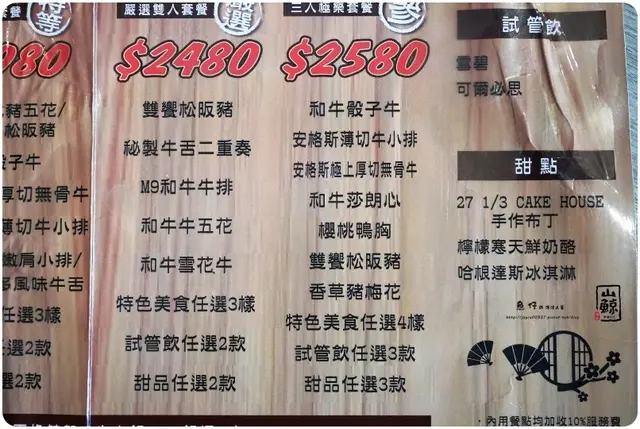 特等
980
豬五花/
松阪豬
骰子牛
厚切無骨牛
薄切牛小排
嫩肩小排/
風味牛舌
任選3樣
選2款
選2款
嚴選雙人套餐
嚴選
$2480
雙饗松阪豬
秘製牛舌二重奏
M9和牛牛排
和牛牛五花
和牛雪花牛
特色美食任選3樣
試管飲任選2款
甜品任選2款
三人極樂套餐
$2580
和牛骰子牛
安格斯薄切牛小排
安格斯極上厚切無骨牛
和牛莎朗心
櫻桃鴨胸
雙饗松阪豬
香草豬梅花
特色美食任選4樣
試管飲任選3款
甜品任選3款
試管飲
雪碧
可爾必思
甜點
27 1/3 CAKE HOUSE
手作布丁
檸檬寒天鮮奶酪
哈根達斯冰淇淋
魚仔
山鯨
·內用餐點均加收10%服務費